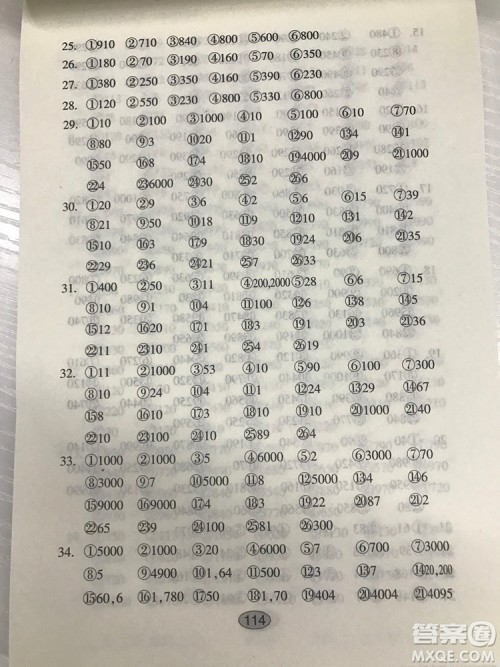 25. ①910 ②710 ③840 ④800 ⑤600 ⑥800
26. ①180 ②70 ③190 ④160 ⑤70 ⑥350
27. ①380 ②250 ③350 ④160 ⑤390 ⑥230
28. ①120 ②550 ③230 ④800 ⑤330 ⑥800
29. ①10 ②100 ③1000 ④10 ⑤100 ⑥10 ⑦70
⑧80 ⑨3 ⑩20 ⑪1 ⑫90 ⑬4 ⑭1
⑮50 ⑯8 ⑰4 ⑱10 ⑲4000 ⑳9 ㉑1000
㉒4 ㉓6000 ㉔30 ㉕2 ㉖6
30. ①20 ②9 ③6 ④2 ⑤6 ⑥15 ⑦39
⑧21 ⑨50 ⑩18 ⑪9 ⑫10 ⑬31 ⑭2
⑮10 ⑯3 ⑰29 ⑱11 ⑲34 ⑳6 ㉑35
㉒29 ㉓6 ㉔21 ㉕0 ㉖33
31. ①400 ②50 ③11 ④200,2000 ⑤28 ⑥6 ⑦15
⑧10 ⑨1 ⑩4 ⑪100 ⑫6 ⑬8 ⑭5
⑮12 ⑯20 ⑰1 ⑱3 ⑲1 ⑳3 ㉑36
㉒11 ㉓10 ㉔1 ㉕4 ㉖19
32. ①11 ②1000 ③53 ④10 ⑤90 ⑥100 ⑦300
⑧10 ⑨24 ⑩4 ⑪1 ⑫24 ⑬29 ⑭67
⑮8 ⑯10 ⑰3 ⑱10 ⑲24 ⑳1000 ㉑40
㉒10 ㉓200 ㉔10 ㉕89 ㉖4
33. ①1000 ②1000 ③5 ④6000 ⑤2 ⑥3000 ⑦70
⑧3000 ⑨7 ⑩5000 ⑪8 ⑫5000 ⑬4 ⑭6
⑮9000 ⑯9000 ⑰4 ⑱3 ⑲3 ⑳87 ㉑2
㉒65 ㉓9 ㉔100 ㉕81 ㉖300
34. ①5000 ②1000 ③20 ④6000 ⑤7 ⑥700 ⑦3000
⑧5 ⑨4900 ⑩1,64 ⑪500 ⑫3 ⑬7 ⑭20,200
⑮60,6 ⑯1,780 ⑰50 ⑱1,70 ⑲404 ⑳4004 ㉑4095
114
答案圈
MXQE.COM